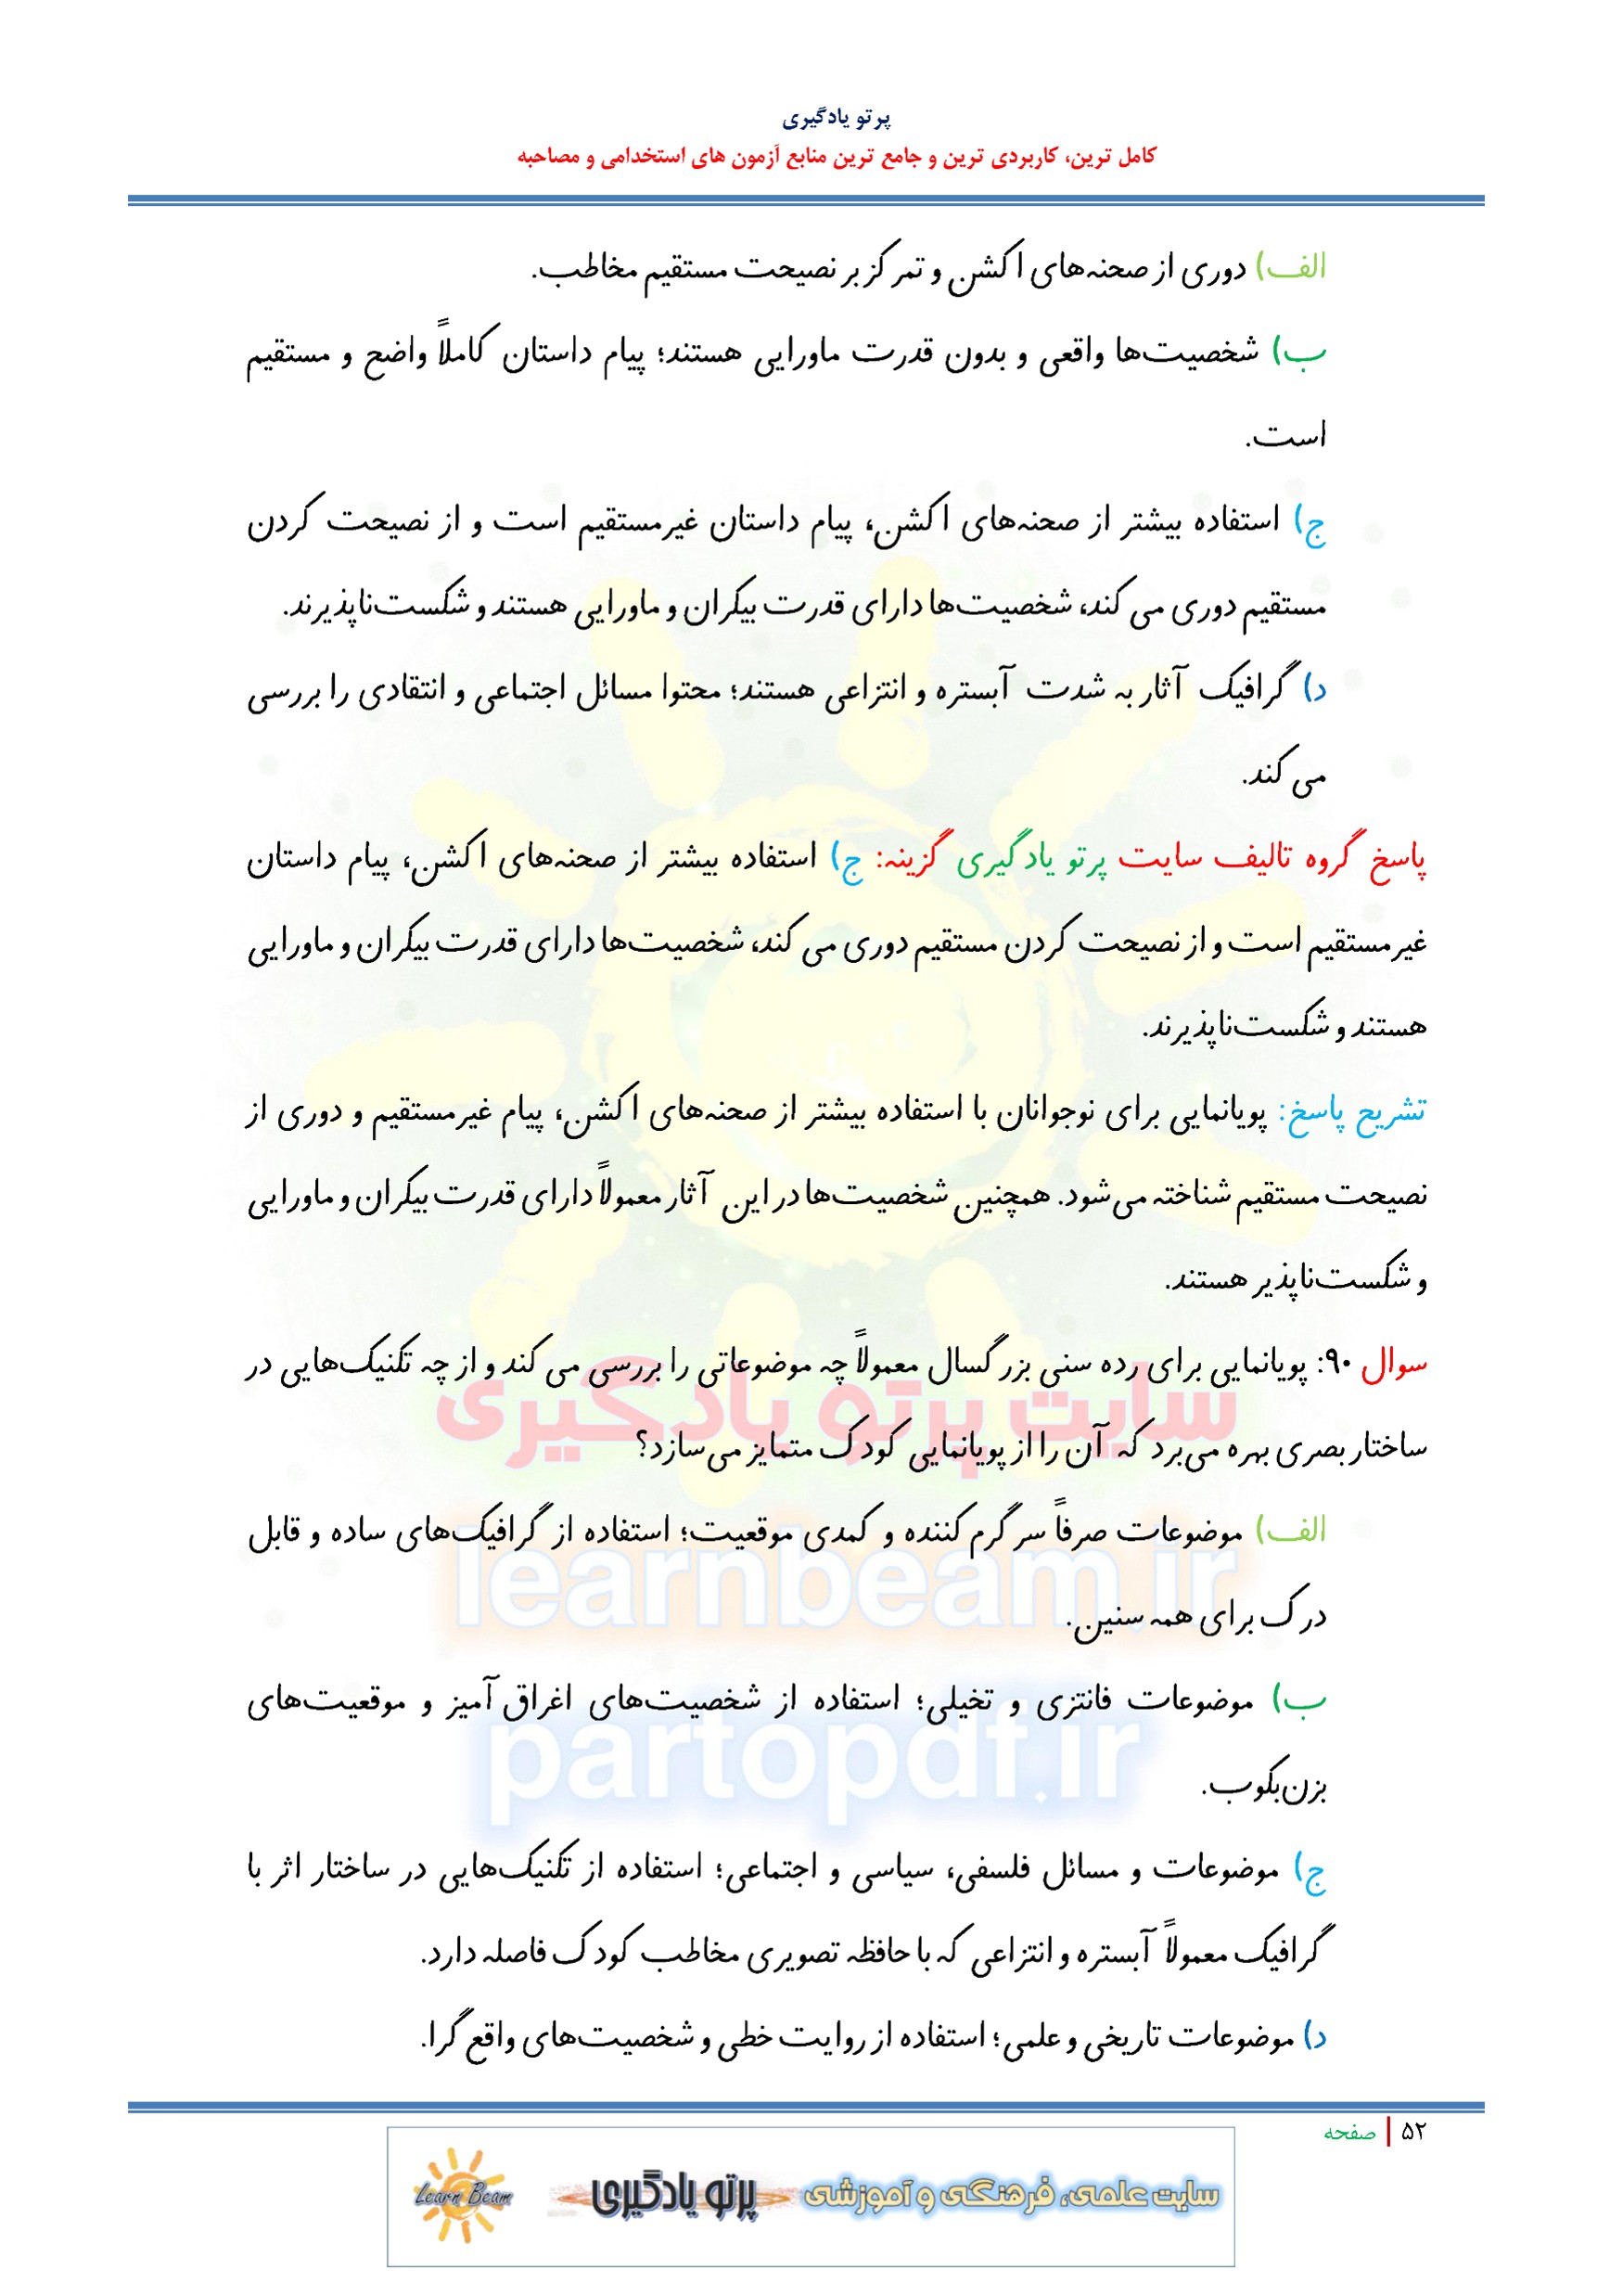 پرتو یادگیری
کامل ترین، کاربردی ترین و جامع ترین منابع آزمون های استخدامی و مصاحبه
الف) دوری از صحنه‌های اکشن و تمرکز بر نصیحت مستقیم مخاطب.
ب) شخصیت‌ها واقعی و بدون قدرت ماورایی هستند؛ پیام داستان کاملاً واضح و مستقیم
است.
ج) استفاده بیشتر از صحنه‌های اکشن، پیام داستان غیرمستقیم است و از نصیحت کردن
مستقیم دوری می کند، شخصیت‌ها دارای قدرت بیکران و ماورایی هستند و شکست‌ناپذیرند.
د) گرافیک آثار به شدت آبستره و انتزاعی هستند؛ محتوا مسائل اجتماعی و انتقادی را بررسی
می کند.
پاسخ گروه تالیف سایت پرتو یادگیری گزینه: ج) استفاده بیشتر از صحنه‌های اکشن، پیام داستان
غیرمستقیم است و از نصیحت کردن مستقیم دوری می کند، شخصیت‌ها دارای قدرت بیکران و ماورایی
هستند و شکست‌ناپذیرند.
تشریح پاسخ: پویانمایی برای نوجوانان با استفاده بیشتر از صحنه‌های اکشن، پیام غیرمستقیم و دوری از
نصیحت مستقیم شناخته می‌شود. همچنین شخصیت‌ها در این آثار معمولاً دارای قدرت بیکران و ماورایی
و شکست‌ناپذیر هستند.
سوال ۹۰: پویانمایی برای رده سنی بزرگسال معمولاً چه موضوعاتی را بررسی می کند و از چه تکنیک‌هایی در
ساختار بصری بهره می‌برد که آن را از پویانمایی کودک متمایز می‌سازد؟
سایت پرتو یادگیری
الف) موضوعات صرفاً سرگرم کننده و کمدی موقعیت؛ استفاده از گرافیک‌های ساده و قابل
learnbeam.ir
درک برای همه سنین.
ب) موضوعات فانتزی و تخیلی؛ استفاده از شخصیت‌های اغراق آمیز و موقعیت‌های
partopdf.ir
بزن‌بکوب.
ج) موضوعات و مسائل فلسفی، سیاسی و اجتماعی؛ استفاده از تکنیک‌هایی در ساختار اثر با
گرافیک معمولاً آبستره و انتزاعی که با حافظه تصویری مخاطب کودک فاصله دارد.
د) موضوعات تاریخی و علمی؛ استفاده از روایت خطی و شخصیت‌های واقع گرا.
۵۲ | صفحه
سایت علمی، فرهنگی و آموزشی پرتو یادگیری Learn Beam